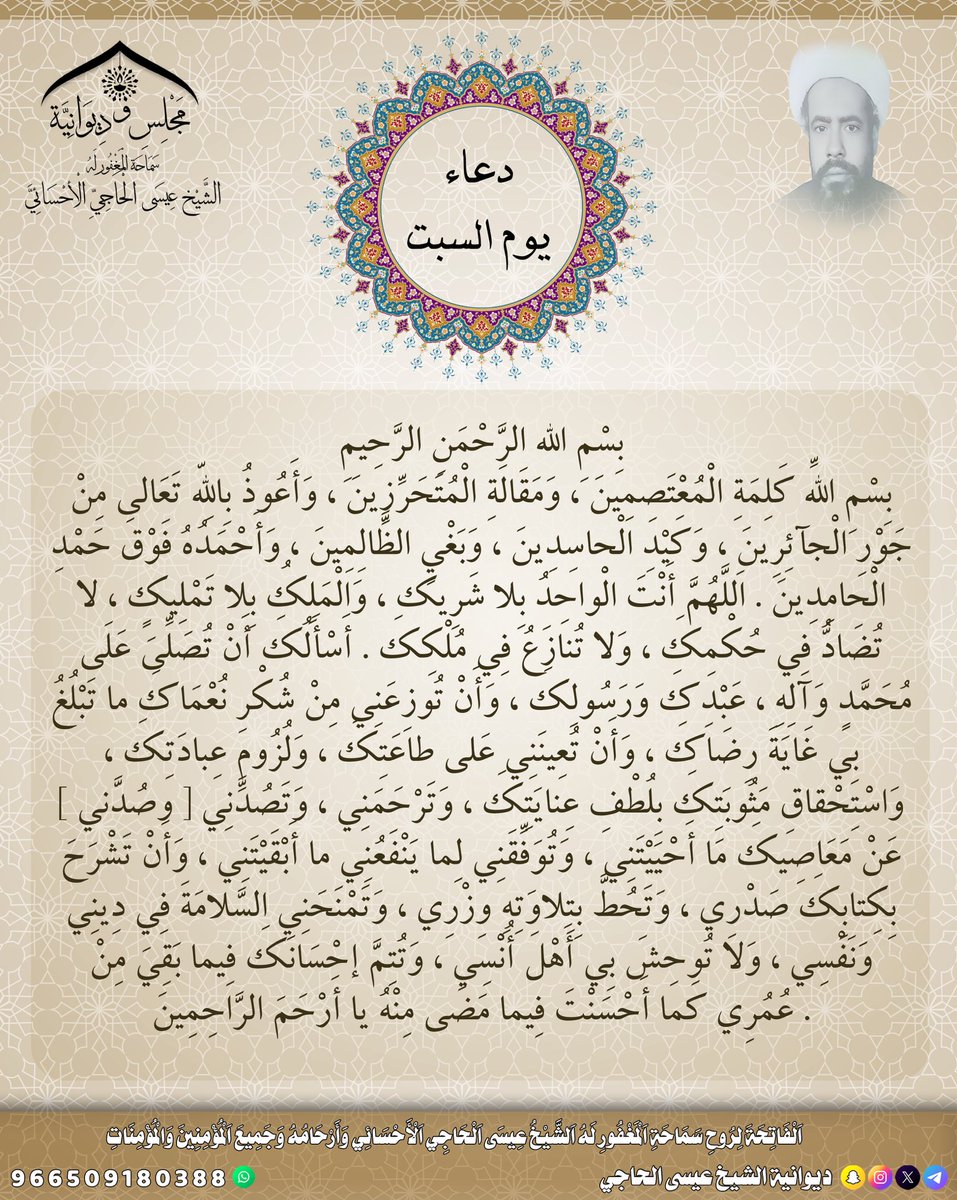 مَجْلِس وَ دِيوَانِيَّة
سَمَاحَة المَغْفُور لَهُ
الشَّيْخ عِيسَى الْحَاجِيّ الْأَحْسَائِيّ
دعاء
يوم السبت
بِسْمِ الله الرَّحْمَنِ الرَّحِيمِ
بِسْمِ اللهِ كَلِمَةِ الْمُعْتَصِمِينَ ، وَمَقَالَةِ الْمُتَحَرِّزِينَ ، وَأَعُوذُ بِاللهِ تَعَالى مِنْ
جَوْرِ الْجآئِرِينَ ، وَكَيْدِ الْحاسِدِينَ ، وَبَغْيِ الظَّالِمِينَ ، وَأَحْمَدُهُ فَوْقَ حَمْدِ
الْحَامِدِينَ . اَللَّهُمَّ أَنْتَ الْواحِدُ بِلا شَرِيكَ ، وَالْمَلِكُ بِلا تَمْلِيكٍ ، لا
تُضَادُّ فِي حُكْمِكَ ، وَلا تُنازَعُ فِي مُلْكِكَ . أسْأَلُكَ أنْ تُصَلِّيَ عَلَى
مُحَمَّدٍ وَآلِهِ ، عَبْدِكَ وَرَسُولِكَ ، وَأنْ تُوزِعَنِي مِنْ شُكْرِ نُعْمَاكَ ما تَبْلُغُ
بِي غَايَةَ رِضَاكَ ، وَأنْ تُعِينَنِي عَلى طاعَتِكَ ، وَلُزُومِ عِبادَتِكَ ،
وَاسْتِحْقاقِ مَثُوبَتِكَ بِلُطْفِ عِنايَتِكَ ، وَتَرْحَمَنِي ، وَتَصُدَّنِي [ وَصُدَّني ]
عَنْ مَعَاصِيكَ مَا أحْيَيْتَنِي ، وَتُوَفِّقَنِي لِما يَنْفَعُنِي ما أبْقَيْتَنِي ، وَأنْ تَشْرَحَ
بِكِتابِكَ صَدْرِي ، وَتَحُطَّ بِتِلاوَتِهِ وِزْرِي ، وَتَمْنَحَنِي السَّلامَةَ فِي دِينِي
وَنَفْسِي ، وَلَا تُوحِشَ بِي أَهْلَ أُنْسِي ، وَتُتِمَّ إحْسَانَكَ فِيما بَقِيَ مِنْ
عُمُرِي كَما أحْسَنْتَ فِيما مَضَى مِنْهُ يا أرْحَمَ الرَّاحِمِينَ .
اَلْفَاتِحَةَ لِرُوحِ سَمَاحَةِ الْمَغْفُورِ لَهُ اَلشَّيْخُ عِيسَى اَلْحَاجِي اَلْأَحْسَائِي وَأَرْحَامُهُ وَجَمِيعَ اَلْمُؤْمِنِينَ وَالْمُؤْمِنَاتِ
ديوانية الشيخ عيسى الحاجي
966509180388